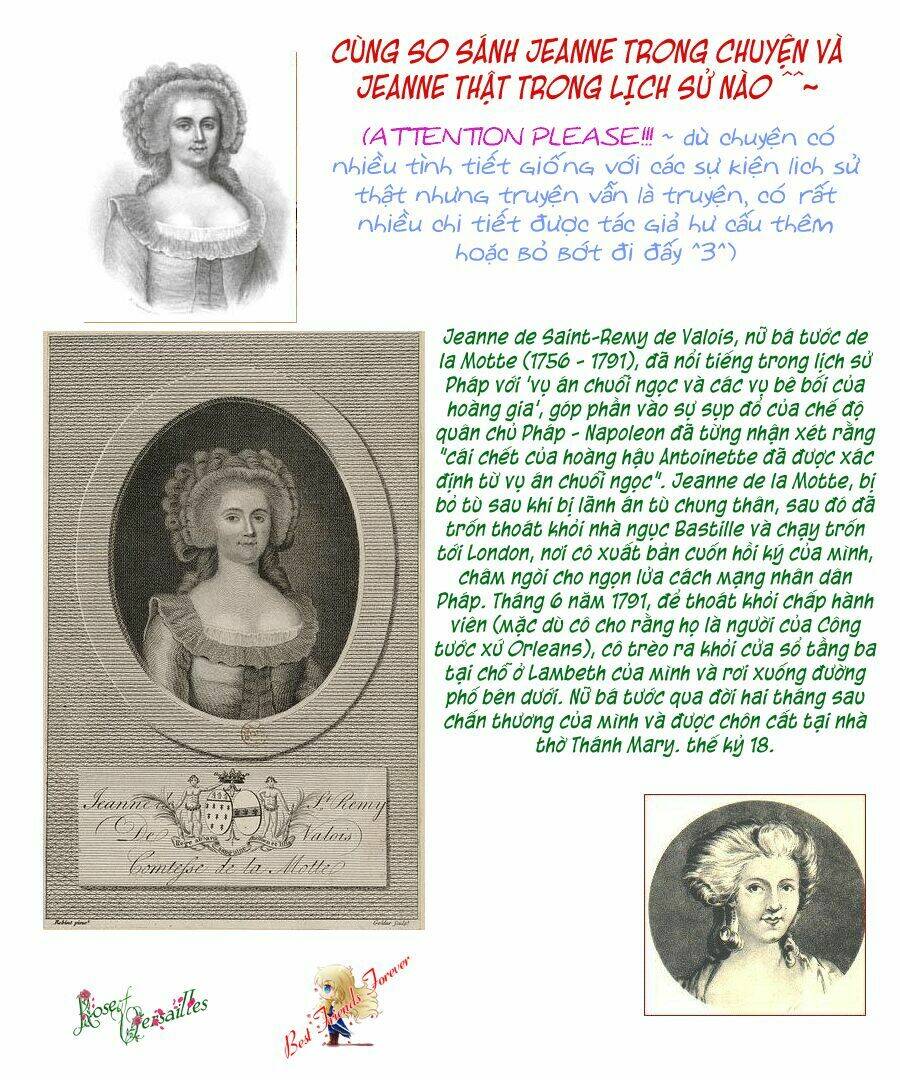 CÙNG SO SÁNH JEANNE TRONG CHUYỆN VÀ
JEANNE THẬT TRONG LỊCH SỬ NÀO ^^~
(ATTENTION PLEASE!!! ~ dù chuyện có
nhiều tình tiết giống với các sự kiện lich sử
thật nhưng truyện vẫn là truyện, có rất
nhiều chi tiết được tác giả hư cấu thêm
hoặc bỏ bớt đi đấy ^3^)
Jeanne de Saint-Remy de Valois, nữ bá tước de
la Motte (1756 - 1791), đã nổi tiếng trong lịch sử
Pháp với 'vụ án chuỗi ngọc và các vụ bê bối của
hoàng gia', góp phần vào sự sụp đổ của chế độ
quân chủ Pháp - Napoleon đã từng nhận xét rằng
"cái chết của hoàng hậu Antoinette đã được xác
định từ vụ án chuỗi ngọc". Jeanne de la Motte, bị
bỏ tù sau khi bị lãnh án tù chung thân, sau đó đã
trốn thoát khỏi nhà ngục Bastille và chạy trốn
tới London, nơi cô xuất bản cuốn hồi ký của mình,
châm ngòi cho ngọn lửa cách mạng nhân dân
Pháp. Tháng 6 năm 1791, để thoát khỏi chấp hành
viên (mặc dù cô cho rằng họ là người của Công
tước xứ Orleans), cô trèo ra khỏi cửa sổ tầng ba
tại chỗ ở Lambeth của mình và rơi xuống đường
phố bên dưới. Nữ bá tước qua đời hai tháng sau
chấn thương của mình và được chôn cất tại nhà
thờ Thánh Mary. thế kỷ 18.
Jeanne de St Remy
De Valois
Comtesse de la Motte
Rose of Versailles
Best Friends Forever